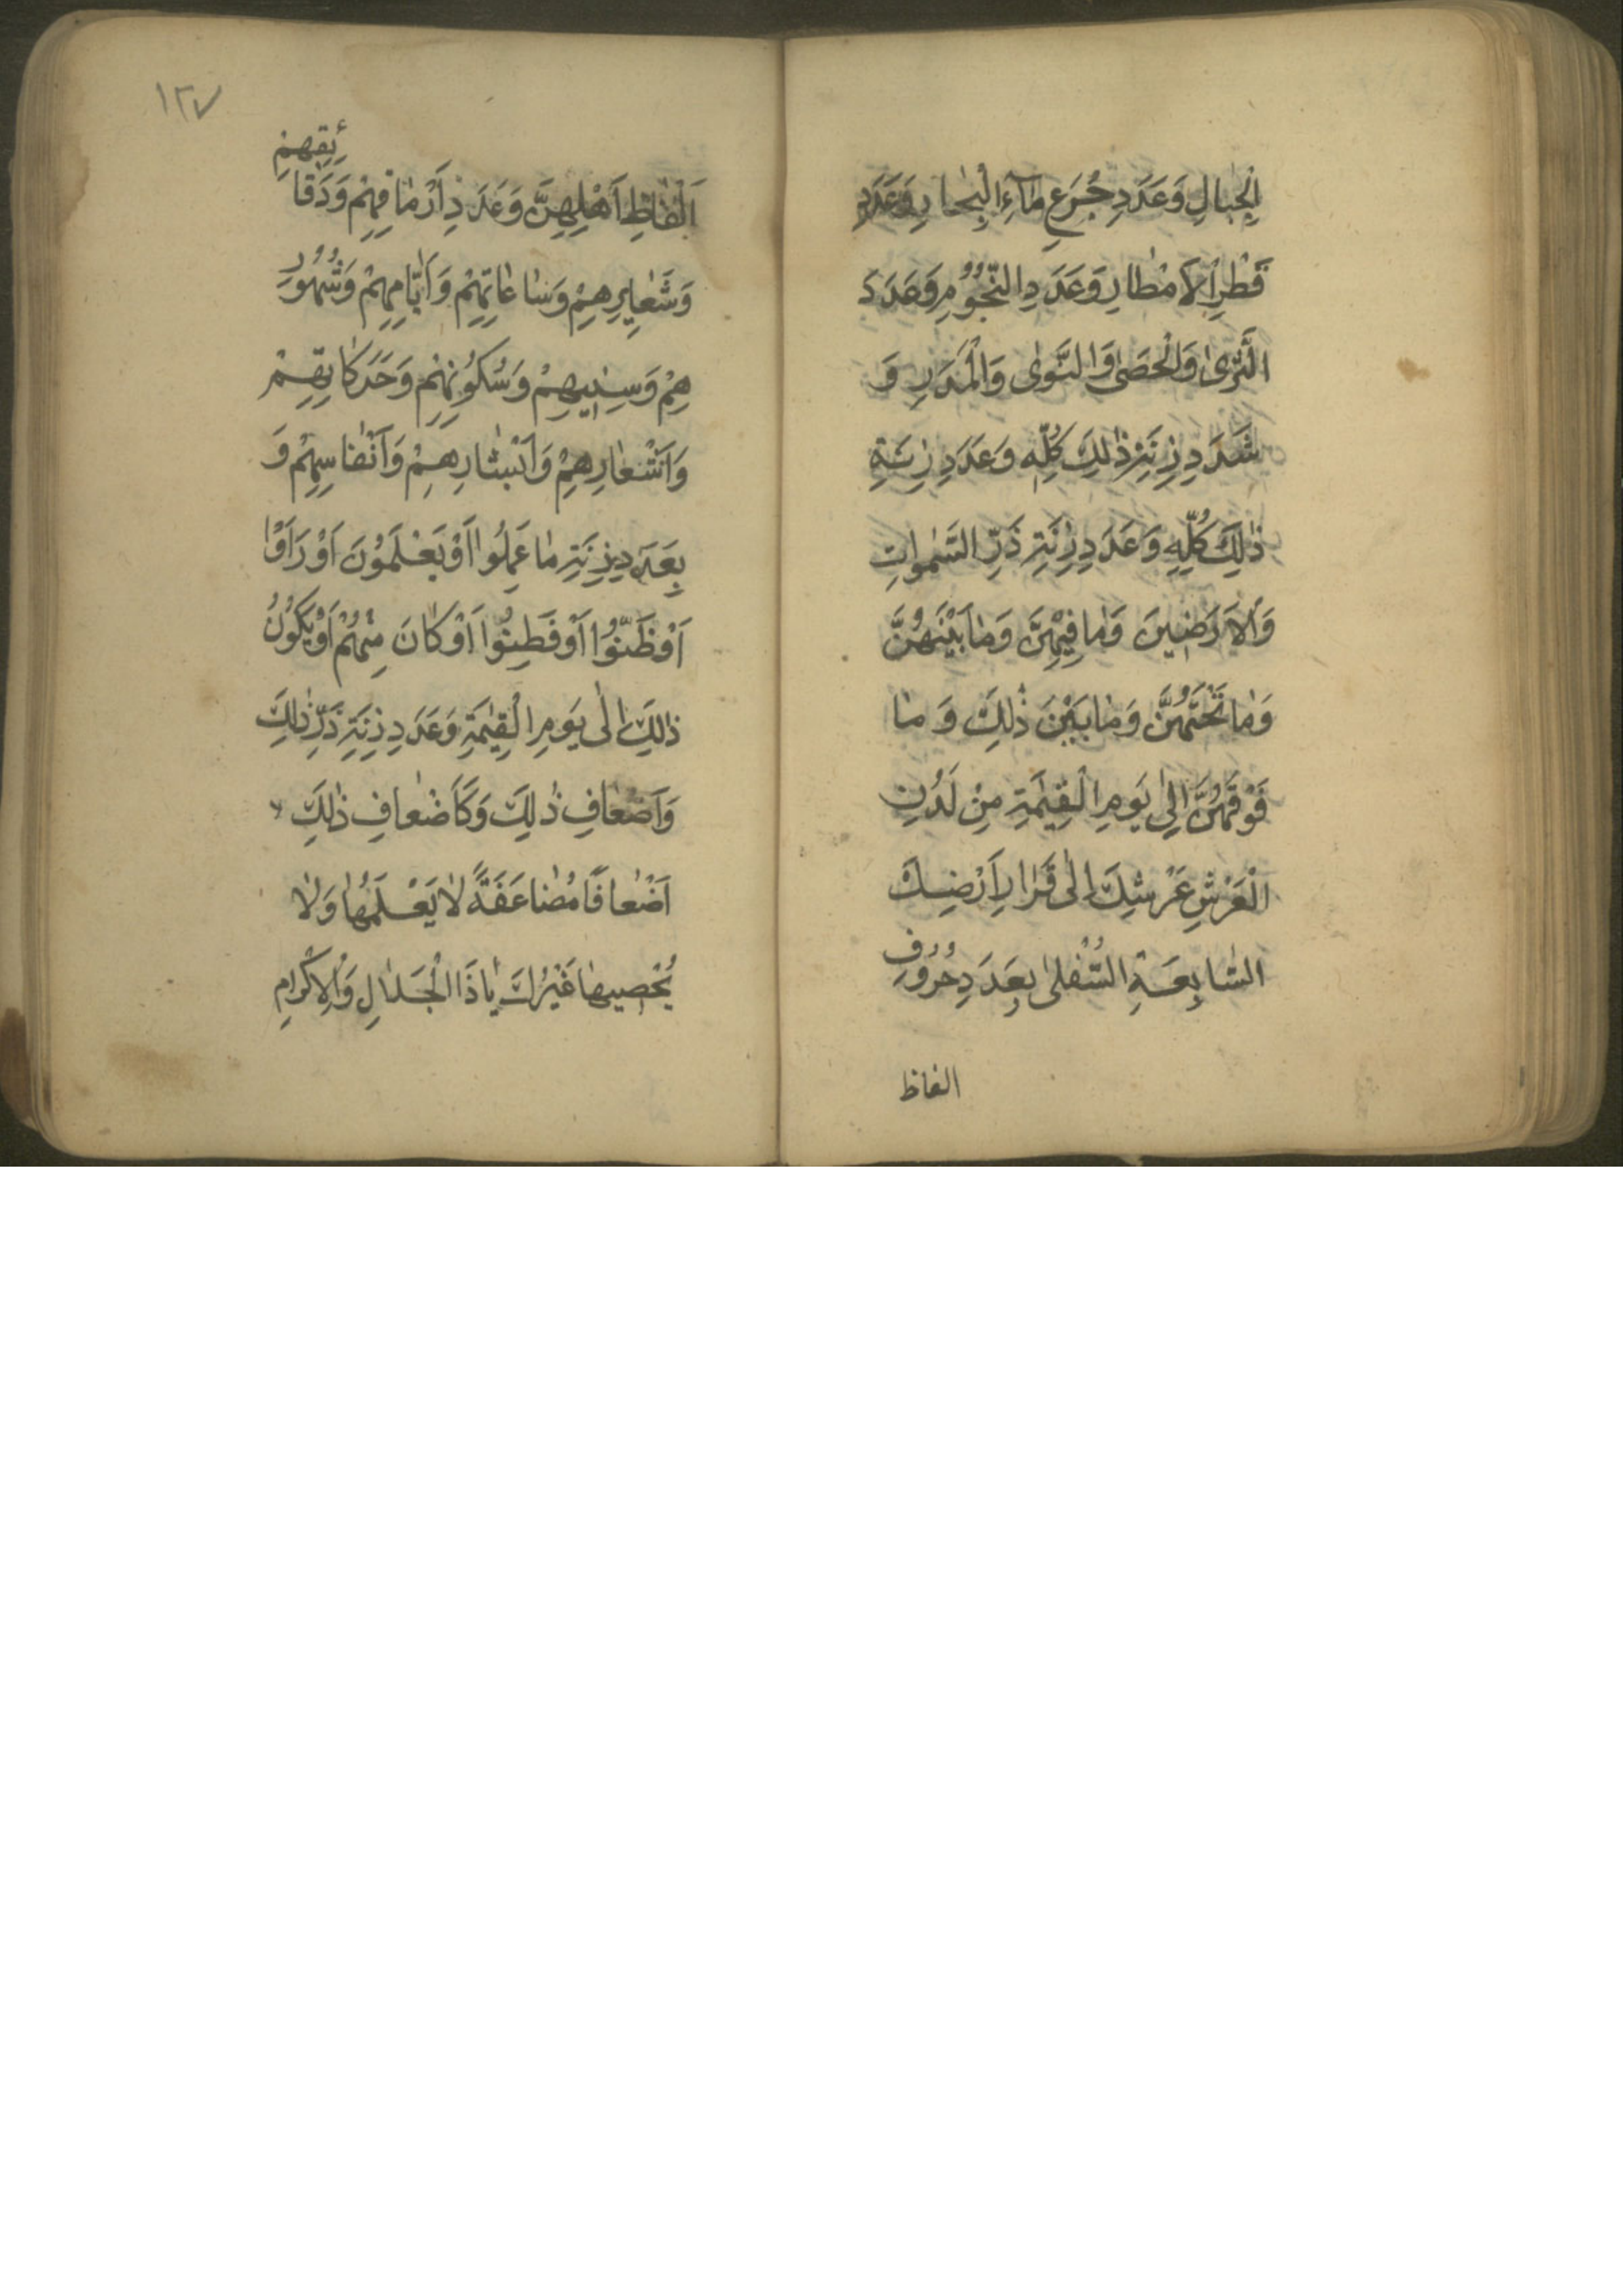 الْجِبٰالِ وَعَدَدِ جُرَعِ مٰآءِ الْبِحٰارِ وَعَدَدِ
قَطْرِ الْاَمْطٰارِ وَعَدَدِ النُّجُوْمِ وَعَدَدَ
الثَّرٰى وَالْحَصٰى وَالنَّوٰى وَالْمَدَرِ وَ
عَدَدِ زِنَةِ ذٰلِكَ كُلِّهِ وَعَدَدِ زِنَةِ
ذٰلِكَ كُلِّهِ وَعَدَدِ زِنَةِ ذَرِّ السَّمٰوٰاتِ
وَالْاَرَضٖينَ وَمٰا فِيْهِنَّ وَمٰا بَيْنَهُنَّ
وَمٰا تَحْتَهُنَّ وَمٰا بَيْنَ ذٰلِكَ وَ مٰا
فَوْقَهُنَّ اِلٰى يَومِ الْقِيٰمَةِ مِنْ لَدُنِ
الْعَرْشِ عَرْشِكَ اِلٰى قَرٰارِ اَرْضِكَ
السّٰابِعَةِ السُّفْلىٰ بِعَدَدِ حُرُوُفِ
الفاظ
١٢٧
اَلْفٰاظِ اَهْلِهِنَّ وَعَدَدِ اَرْمٰاقِهِمْ وَدَقٰا
ئِقِهِمْ
وَشَعٰايِرِهِمْ وَسٰاعٰاتِهِمْ وَاَيّٰامِهِمْ وَشُهُوُرِ
هِمْ وَسِنٖيهِمْ وَسُكُوُنِهِمْ وَحَرَكٰاتِهِمْ
وَاَشْعٰارِهِمْ وَاَبْشٰارِهِمْ وَاَنْفٰاسِهِمْ وَ
بِعَدَدِ زِنَةِ مٰا عَمِلُوا اَوْ يَعْلَمَوُنَ اَوْ رَاَوْا
اَوْ ظَنُّوُا اَوْ فَطِنُوا اَوْ كٰانَ مِنْهُمْ اَوْ يَكُوُنُ
ذٰلِكَ اِلٰى يَومِ الْقِيٰمَةِ وَعَدَدِ زِنَةِ ذَرِّ ذٰلِكَ
وَاَضْعٰافِ ذٰلِكَ وَكَاَضْعٰافِ ذٰلِكَ
اَضْعٰافًا مُضٰاعَفَةً لاٰ يَعْلَمُهٰا وَلاٰ
يُحْصٖيهٰا غَيْرُكَ يٰا ذَا الْجَلاٰلِ وَالْاِكْرٰامِ